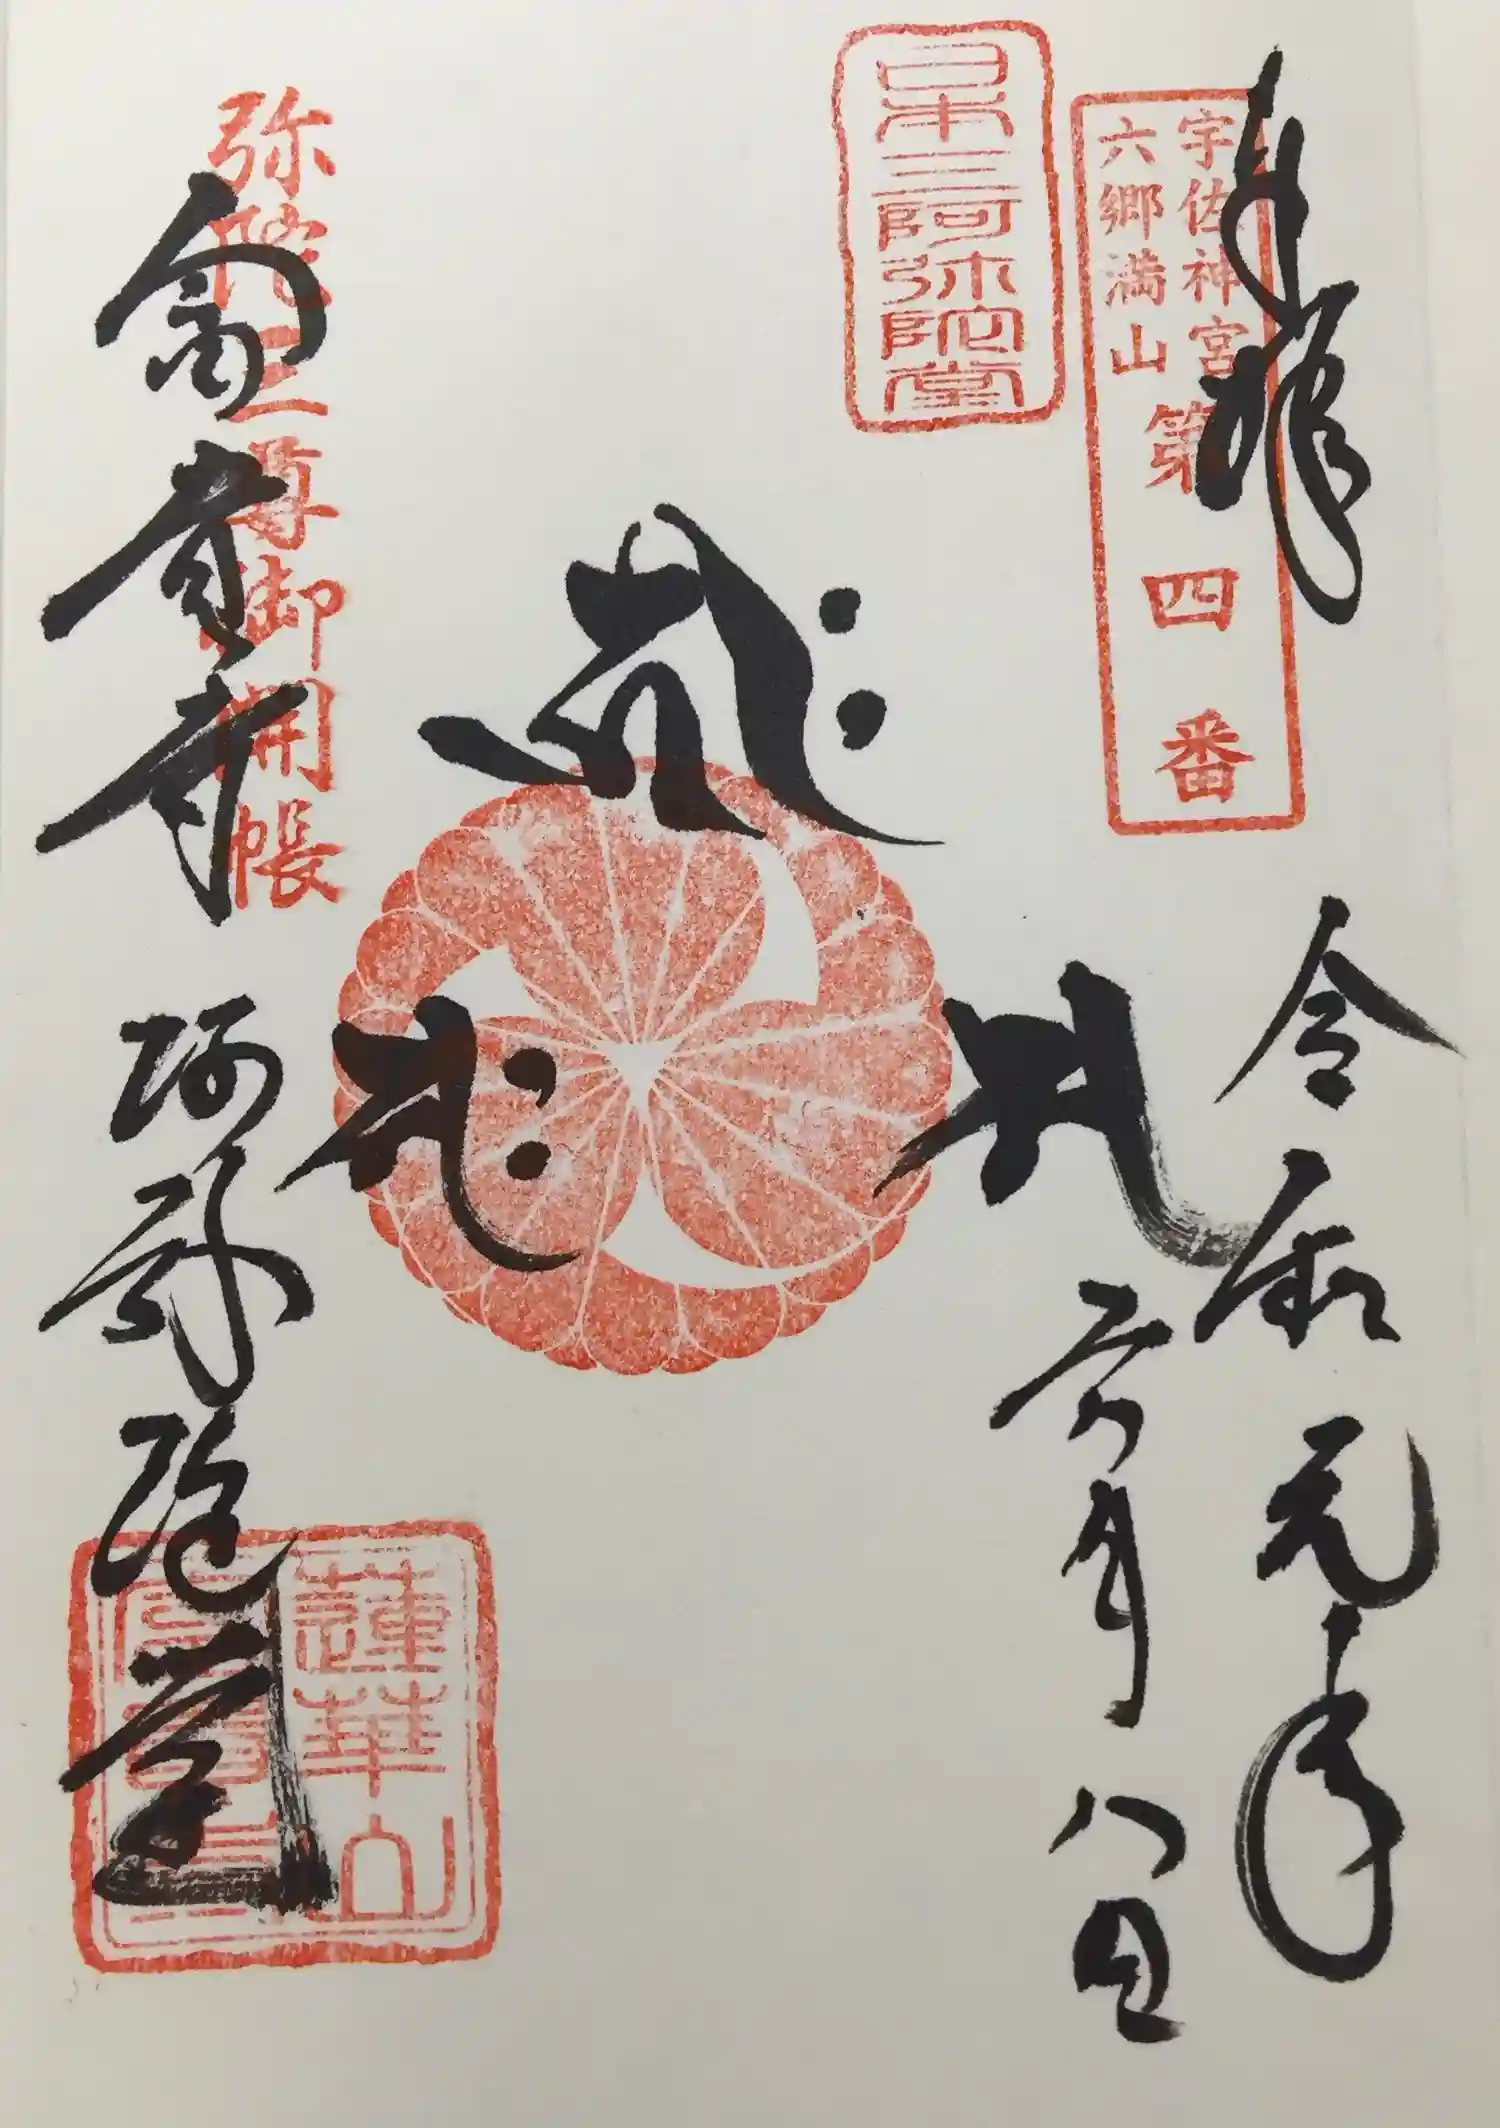 奉拝
宇佐神宮
六郷満山
第四番
日本三阿弥陀堂
令和元年
六月八日
弥陀三尊御開帳
富貴寺 阿弥陀堂
蓮華山
富貴寺